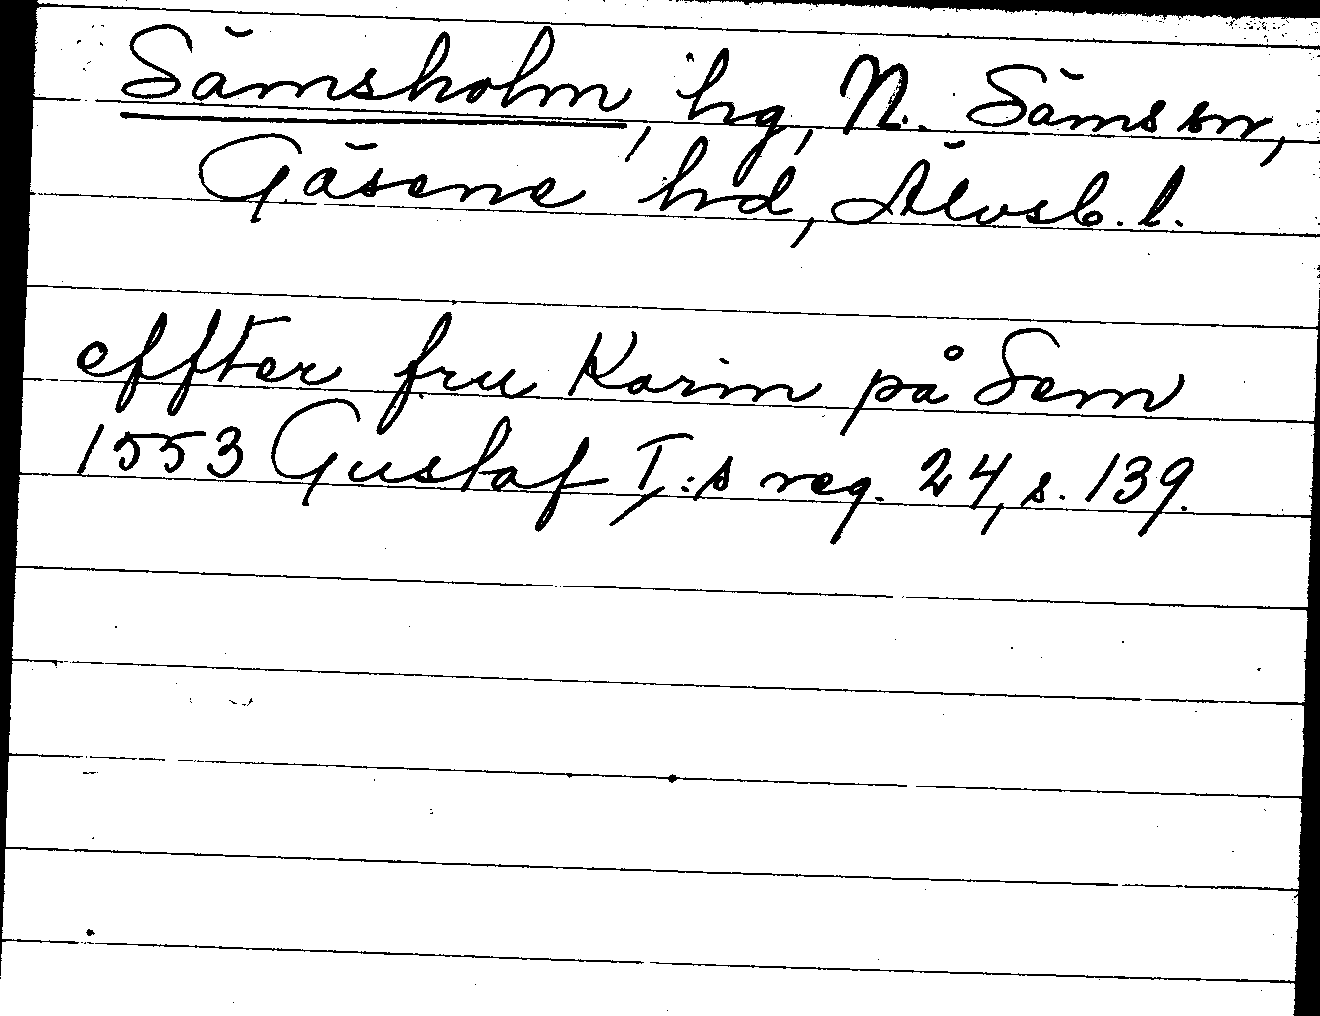 Sämsholm, hg, N. Säms sn,
Gäsene hd, Älvsb. l.
effter fru Karin på Sem
1553 Gustaf I:s reg. 24, s. 139.